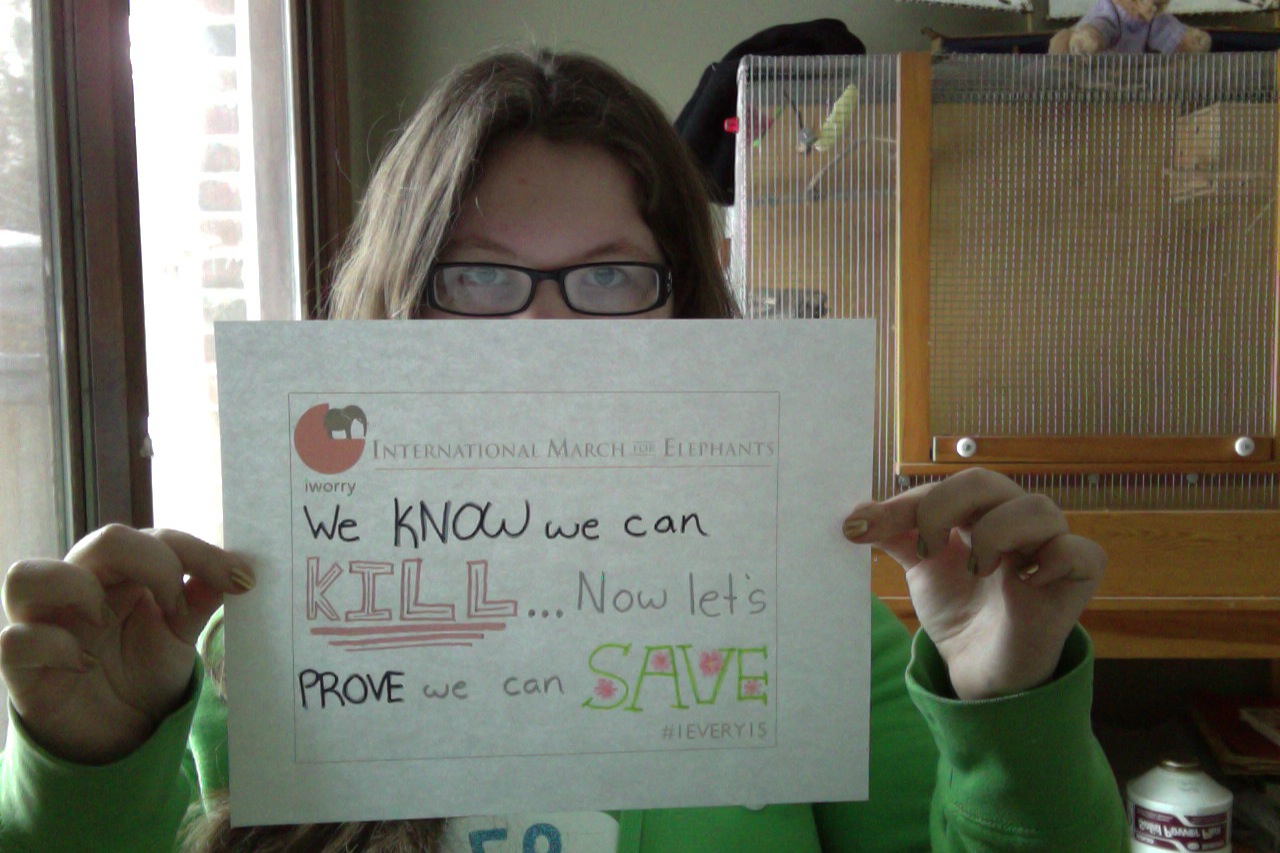 INTERNATIONAL MARCH FOR ELEPHANTS
iworry
We KNOW we can
KILL... Now let's
PROVE we can SAVE
#1EVERY15